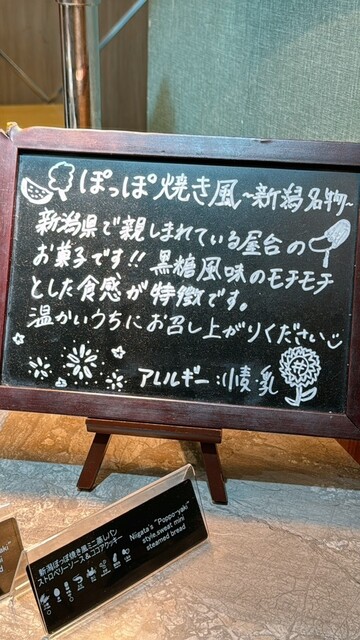 ぽっぽ焼き風~新潟名物~
新潟県で親しまれている屋台の
お菓子です!! 黒糖風味のモチモチ
とした食感が特徴です。
温かいうちにお召し上がりください
アレルギー:小麦・乳
新潟ぽっぽ焼き風ミニ蒸しパン
ストロベリーソース&ココアクッキー
Niigata's "Poppo-yaki"
style.sweat mini
steamed bread